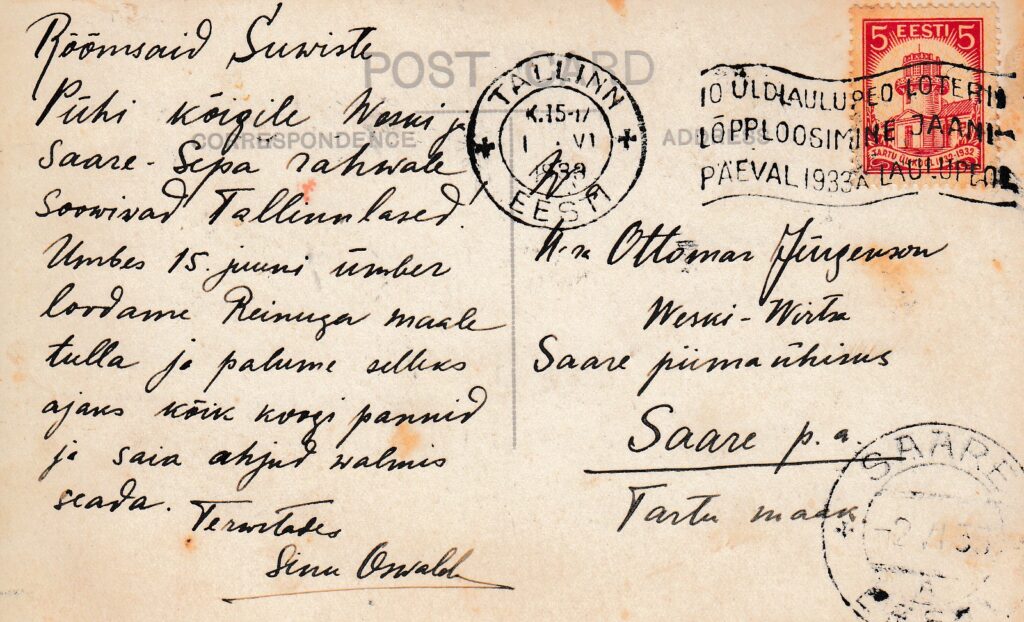 Rõõmsaid Suwiste
Pühi kõigile Weski ja
Saare-Sepa rahwale
soowiwad Tallinnlased.
Umbes 15. juuni ümber
loodame Reinuga maale
tulla ja palume selleks
ajaks kõik koogi pannid
ja saia ahjud walmis
seada.
Terwitades
Sinu Oswald
POST CARD
CORRESPONDENCE
ADDRESS
TALLINN
K.15-17
1 VI
EESTI
5 EESTI 5
TARTU ÜLIKOOL 1632-1932
10 ÜLDLAULUPEO LOTERII
LÕPPLOOSIMINE JAANI-
PÄEVAL 1933A LAULUPEOL
H-ra Ottomar Jürgenson
Weski-Wirtsa
Saare piimaühisus
Saare p. a.
Tartu maak.
SAARE
-2 VI 33
EESTI